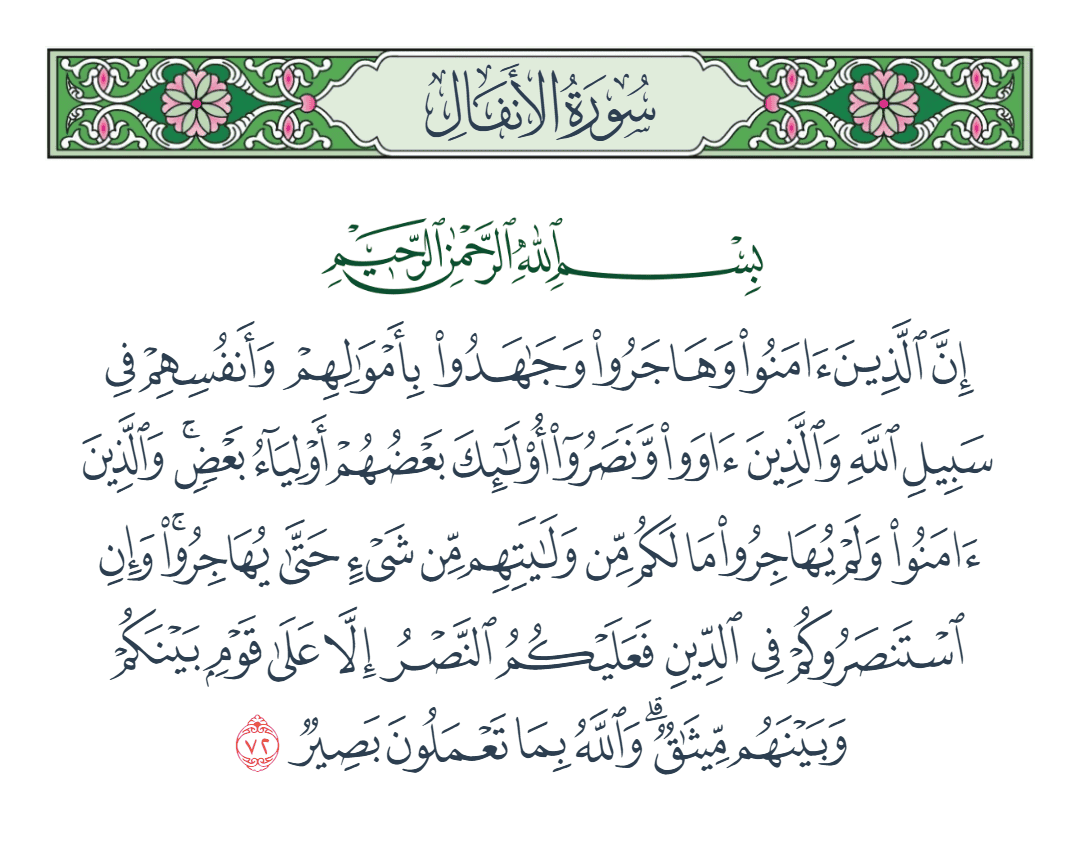 سُورَةُ الأَنفَالِ
بِسْمِ ٱللَّهِ ٱلرَّحْمَٰنِ ٱلرَّحِيمِ
إِنَّ ٱلَّذِينَ ءَامَنُوا۟ وَهَاجَرُوا۟ وَجَٰهَدُوا۟ بِأَمْوَٰلِهِمْ وَأَنفُسِهِمْ فِى
سَبِيلِ ٱللَّهِ وَٱلَّذِينَ ءَاوَوا۟ وَّنَصَرُوٓا۟ أُو۟لَٰٓئِكَ بَعْضُهُمْ أَوْلِيَآءُ بَعْضٍ ۚ وَٱلَّذِينَ
ءَامَنُوا۟ وَلَمْ يُهَاجِرُوا۟ مَا لَكُم مِّن وَلَٰيَتِهِم مِّن شَىْءٍ حَتَّىٰ يُهَاجِرُوا۟ ۚ وَإِنِ
ٱسْتَنصَرُوكُمْ فِى ٱلدِّينِ فَعَلَيْكُمُ ٱلنَّصْرُ إِلَّا عَلَىٰ قَوْمٍۭ بَيْنَكُمْ
وَبَيْنَهُم مِّيثَٰقٌ ۗ وَٱللَّهُ بِمَا تَعْمَلُونَ بَصِيرٌ ٧٢